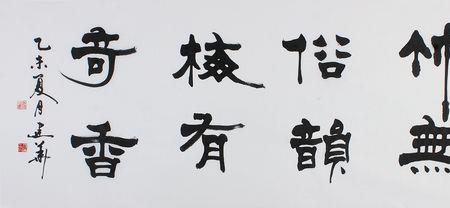 竹無
俗韻
梅有
奇香
乙未夏月